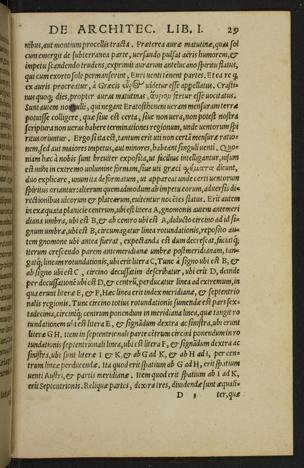 DE ARCHITEC. LIB. I. 29
nibus, aut montium procellis tracta. Præterea auræ matutinæ, quas sol
cum emergit de subterranea parte, uersando pulsat aëris humorem, &
impetu scandendo trudens, exprimit aurarum antelucano spiritu flatus,
qui cum exorto sole permanserint, Euri uenti tenent partes. Et ea re q̃
ex auris procreatur, à Græcis uidetur esse appellatus. Crasti-
nus quoq; dies, propter auras matutinas, fertur esse uocitatus.
Sunt autem nonnulli, qui negant Eratosthenem ueram mensuram terræ
potuisse colligere, quæ siue est certa, siue non uera, non potest nostra
scriptura non ueras habere terminationes regionum, unde uentorum spi
ritus oriuntur. Ergo si ita est, tantum erit uti non certã mensuræ ratio-
nem, sed aut maiores impetus, aut minores, habeant singuli uenti. Quo
niam hæc à nobis sunt breuiter exposita, ut facilius intelligantur, uisum
est mihi in extremo uolumine formam, siue uti græci dicunt,
duo explicare, unum ita deformatum, ut appareat unde certi uentorum
spiritus oriantur: alterum quemadmodum ab impetu eorum, aduersis di-
rectionibus uicorum & platearum, euitentur nocẽtes flatus. Erit autem
in exæquata planicie centrum, ubi est litera A, gnomonis autem antemeri
diana umbra, ubi est B, & à centro ubi est A, diducto circino ad id si-
gnum umbræ, ubi est B, circumagatur linea rotundationis, reposito au-
tem gnomone ubi antea fuerat, expectanda est dum decrescat, faciatq;
iterum crescendo parem antemeridianæ umbræ postmeridianam, tan-
gatq; lineam rotundationis, ubi erit litera C, Tunc à signo ubi est B, &
ab signo ubi est C, circino decussatim describatur, ubi erit D, deinde
per decussationẽ ubi est D, & centrũ, perducatur linea ad extremum, in
qua erunt literæ E, & F, Hæc linea erit index meridianæ, & septentrio
nalis regionis. Tunc circino totius rotundationis sumenda est pars sex-
tadecima, circiniq; centrum ponendum in meridiana linea, quæ tangit ro
tundationem ubi est litera E, & signandum dextra ac sinistra, ubi erunt
literæ G H. Item in septentrionali parte cẽtrum circini ponendum in ro
tundationis septentrionali linea, ubi est litera F, & signãdum dextra ac
sinistra, ubi sunt literæ I & K, & ab G ad K, & ab H ad I, per cen-
trum lineæ perducendæ. Ita quod erit spatium ab G ad H, erit spatium
uenti Austri, & partis meridianæ. Item quod erit spatium ab I ad K,
erit Septentrionis. Reliquæ partes, dextra tres, diuidendæ sunt æquali-
D
ter, quæ